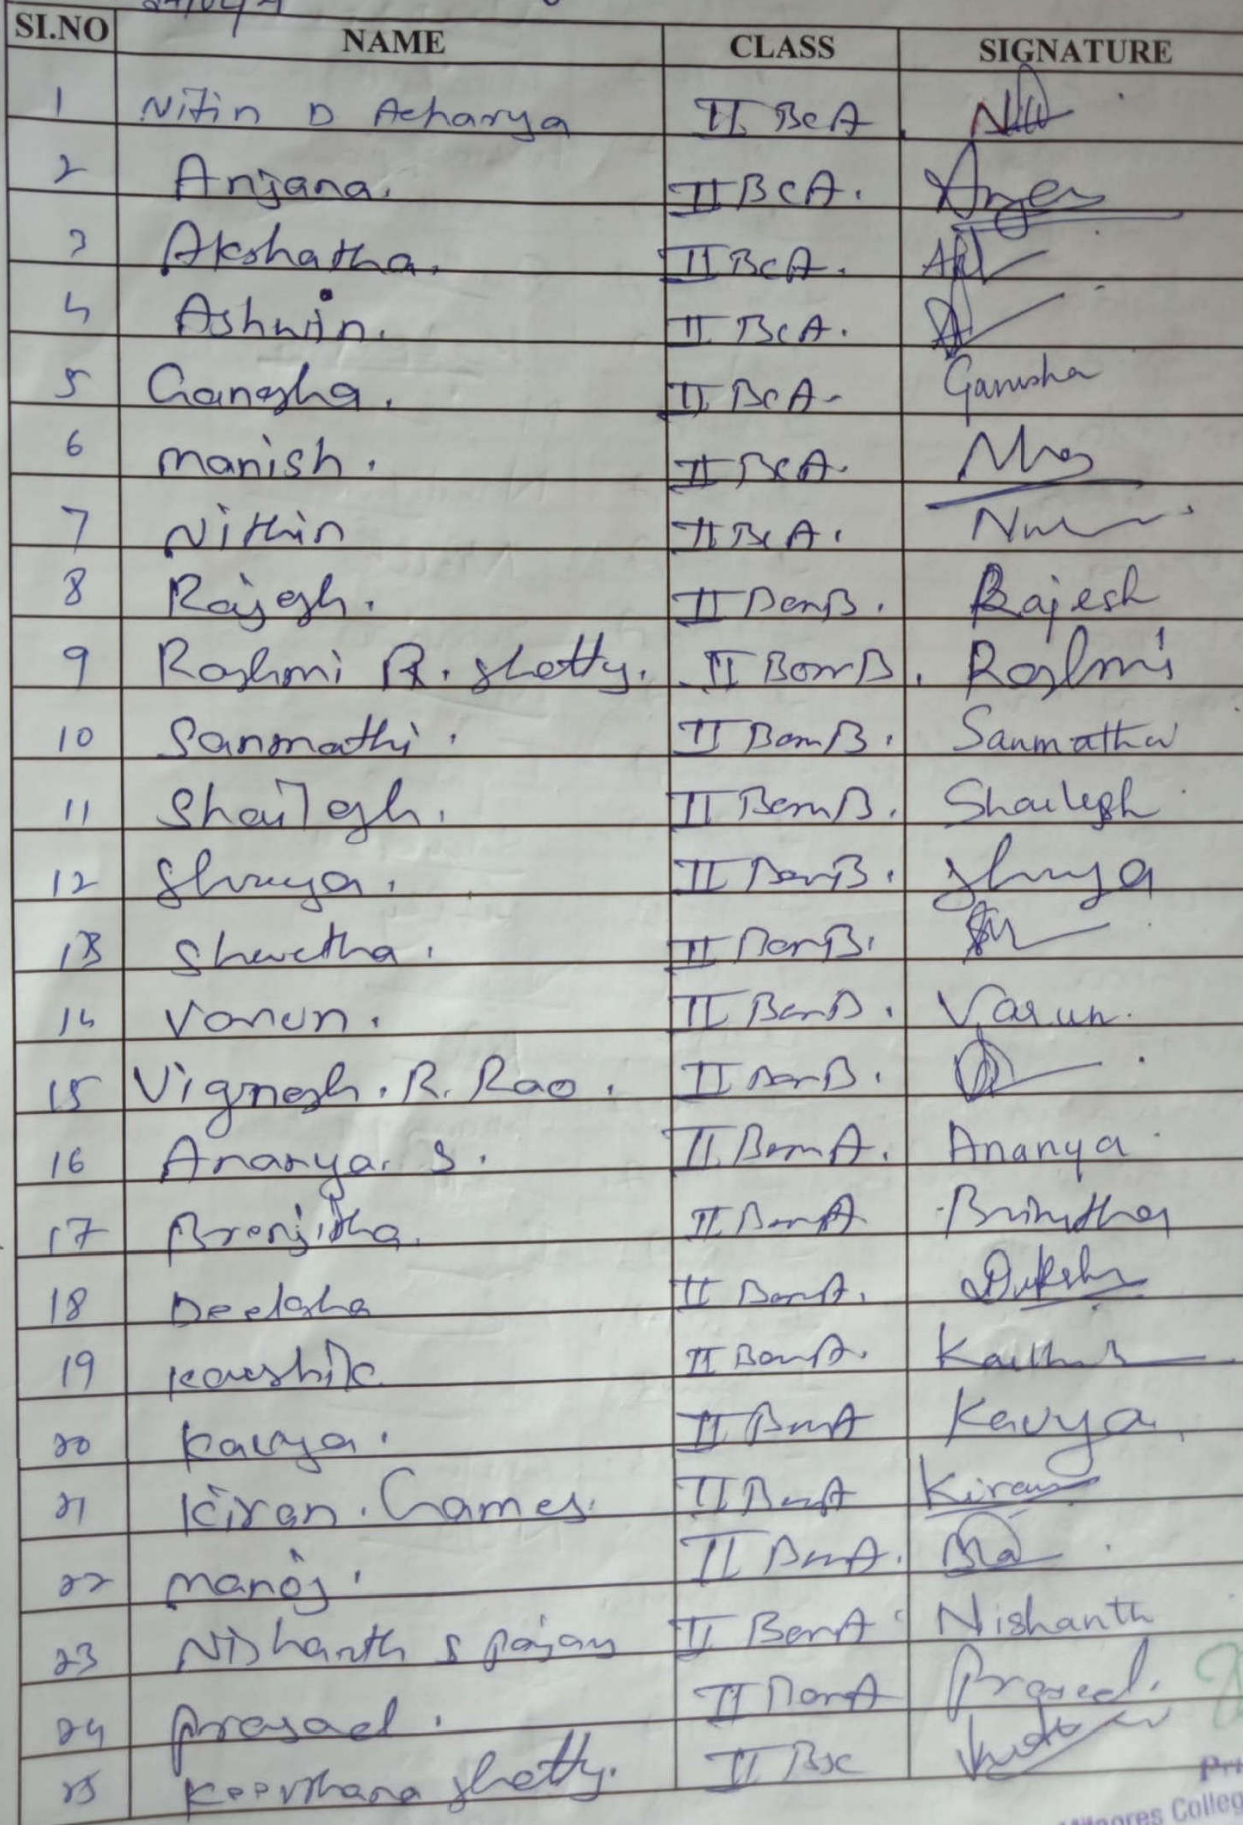 SI.NO NAME CLASS SIGNATURE
1 Nitin D Acharya II BCA
2 Anjana. II BCA.
3 Akshatha. II BCA.
4 Ashwin. II BCA.
5 Ganesha. II BCA- Ganesha
6 manish. II BCA.
7 Nithin II BCA.
8 Rajesh. II BcomB. Rajesh
9 Rashmi R. Shetty. II BcomB. Rashmi
10 Sanmathi. II BcomB. Sanmathi
11 Shailesh. II BcomB. Shailesh
12 Shreya. II BcomB. Shreya
13 Shwetha. II BcomB.
14 Varun. II BcomB. Varun.
15 Vignesh. R. Rao. II BcomB.
16 Ananya. S. II BcomA. Ananya
17 II BcomA
18 Deeksha II BcomA. Diksha
19 Kaushik II BcomA.
20 Kavya. II BcomA Kavya
21 Kiran. II BcomA Kiran
22 manoj. II BcomA.
23 Nishanth S II BcomA Nishanth
24 prasad. II BcomA Prasad.
25 Keerthana Shetty. II BSc
Pri
Colleg